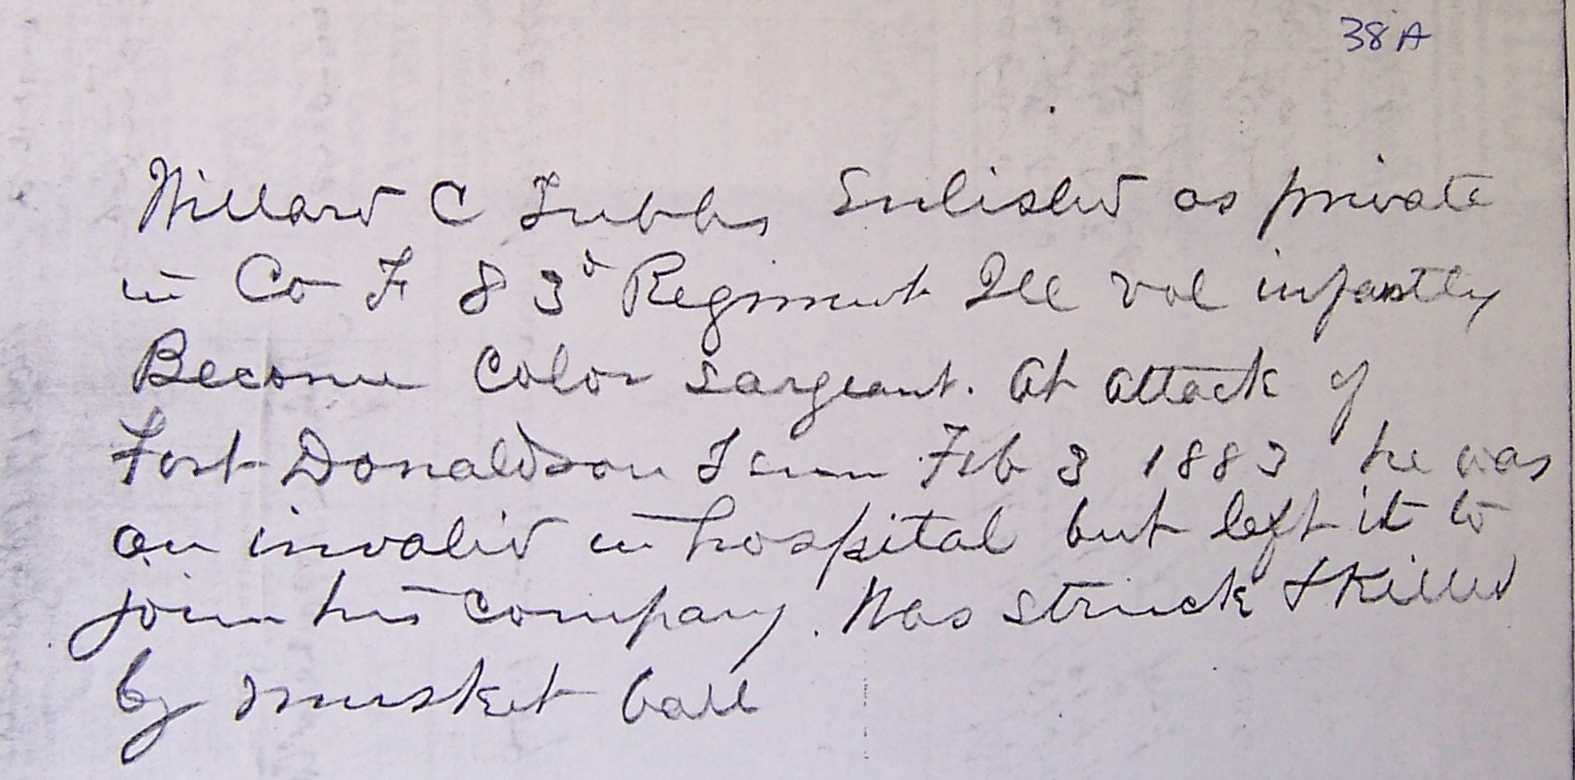 38A
Willard C Tubbs Enlisted as private
in Co F 83d Regiment Ill vol infantly
Become Color Sargeant. At attack of
Fort Donaldson Tenn Feb 3 1883 he was
an invalid in hospital but left it to
join his company. Was struck & Killed
by musket ball